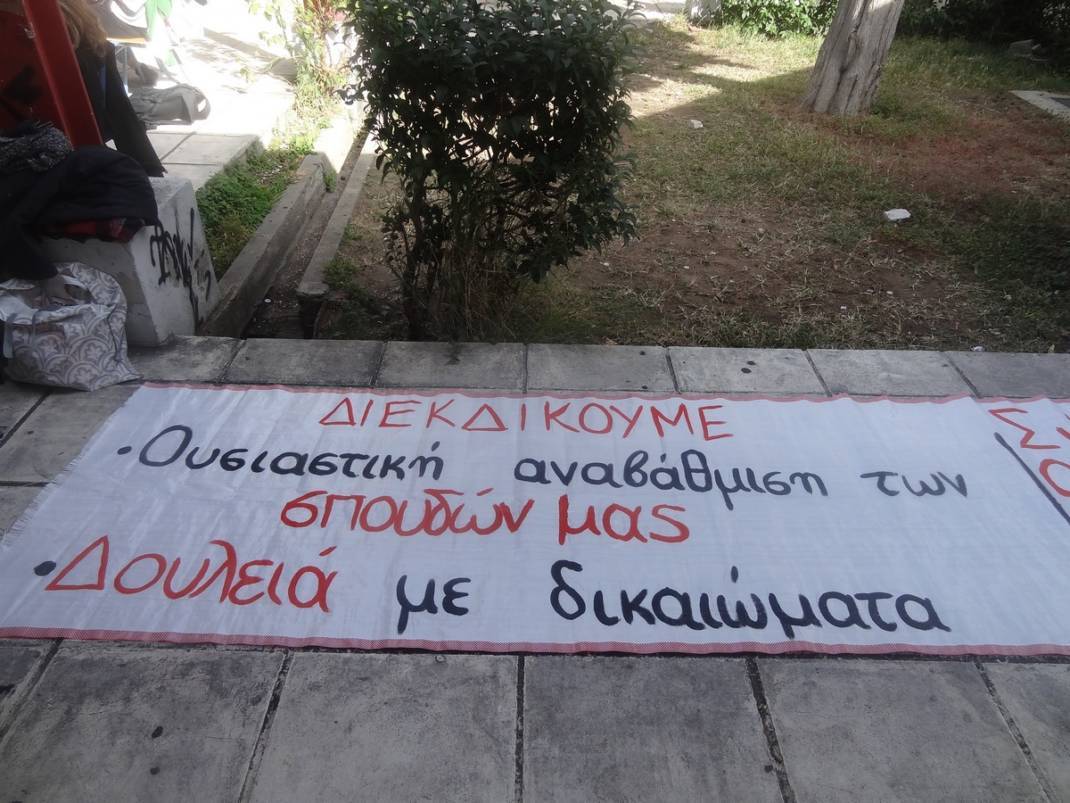 ΔΙΕΚΔΙΚΟΥΜΕ
• Ουσιαστική αναβάθμιση των
σπουδών μας
• Δουλειά με δικαιώματα